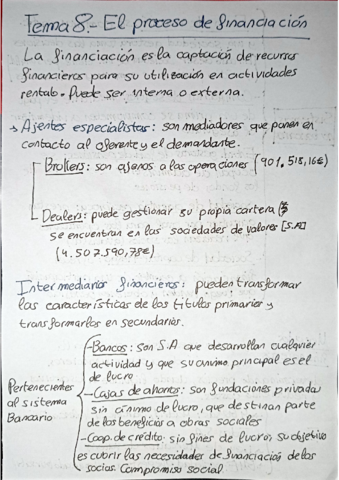 Tema 8.- El proceso de financiación
La financiación es la captación de recursos
financieros para su utilización en actividades
rentab. Puede ser interna o externa.
→ Agentes especialistas: son mediadores que ponen en
contacto al oferente y el demandante.
Brokers: son ajenos a las operaciones (901.518,16€)
Dealers: puede gestionar su propia cartera
se encuentran en las sociedades de valores [S.A]
(4.507.590,78€)
Intermediarios financieros: pueden transformar
las características de los títulos primarios y
transformarlos en secundarios.
Pertenecientes
al sistema
Bancario
-Bancos: son S.A que desarrollan cualquier
actividad y que su ánimo principal es el
de lucro
-Cajas de ahorros: son fundaciones privada
sin ánimo de lucro, que destinan parte
de los beneficios a obras sociales
-Coop. de crédito: sin fines de lucro, su objetivo
es cubrir las necesidades de financiación de los
socios. Compromiso social